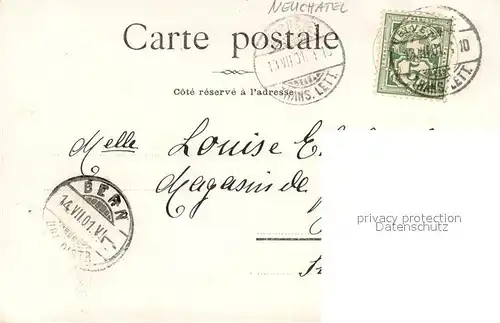 NEUCHATEL
Carte postale
Côté réservé à l'adresse
HELVETIA
10
TRANS. LETT.
TRANS. LETT.
Melle Louise
Magasin de
privacy protection
Datenschutz
BERN
14.VII.01.VI